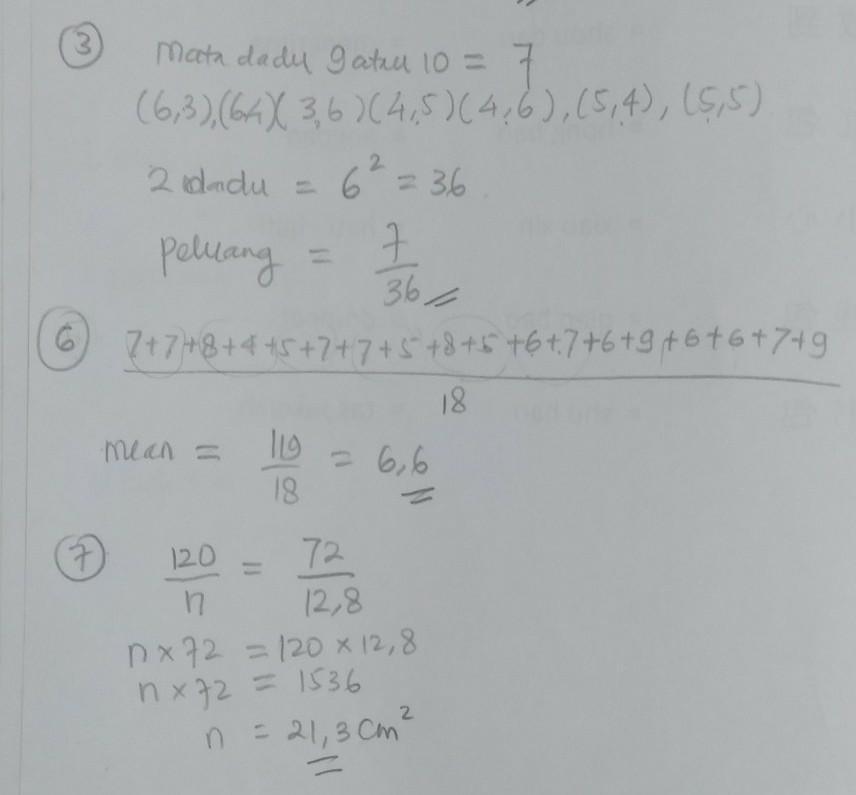 ③ Mata dadu 9 atau 10 = 7
(6,3),(6,4)(3,6)(4,5)(4,6),(5,4),(5,5)
2 dadu = 6² = 36
Peluang = 7/36
⑥ 7+7+8+4+5+7+7+5+8+5+6+7+6+9+6+6+7+9
18
mean = 119/18 = 6,6
⑦ 120/n = 72/12,8
n × 72 = 120 × 12,8
n × 72 = 1536
n = 21,3 cm²